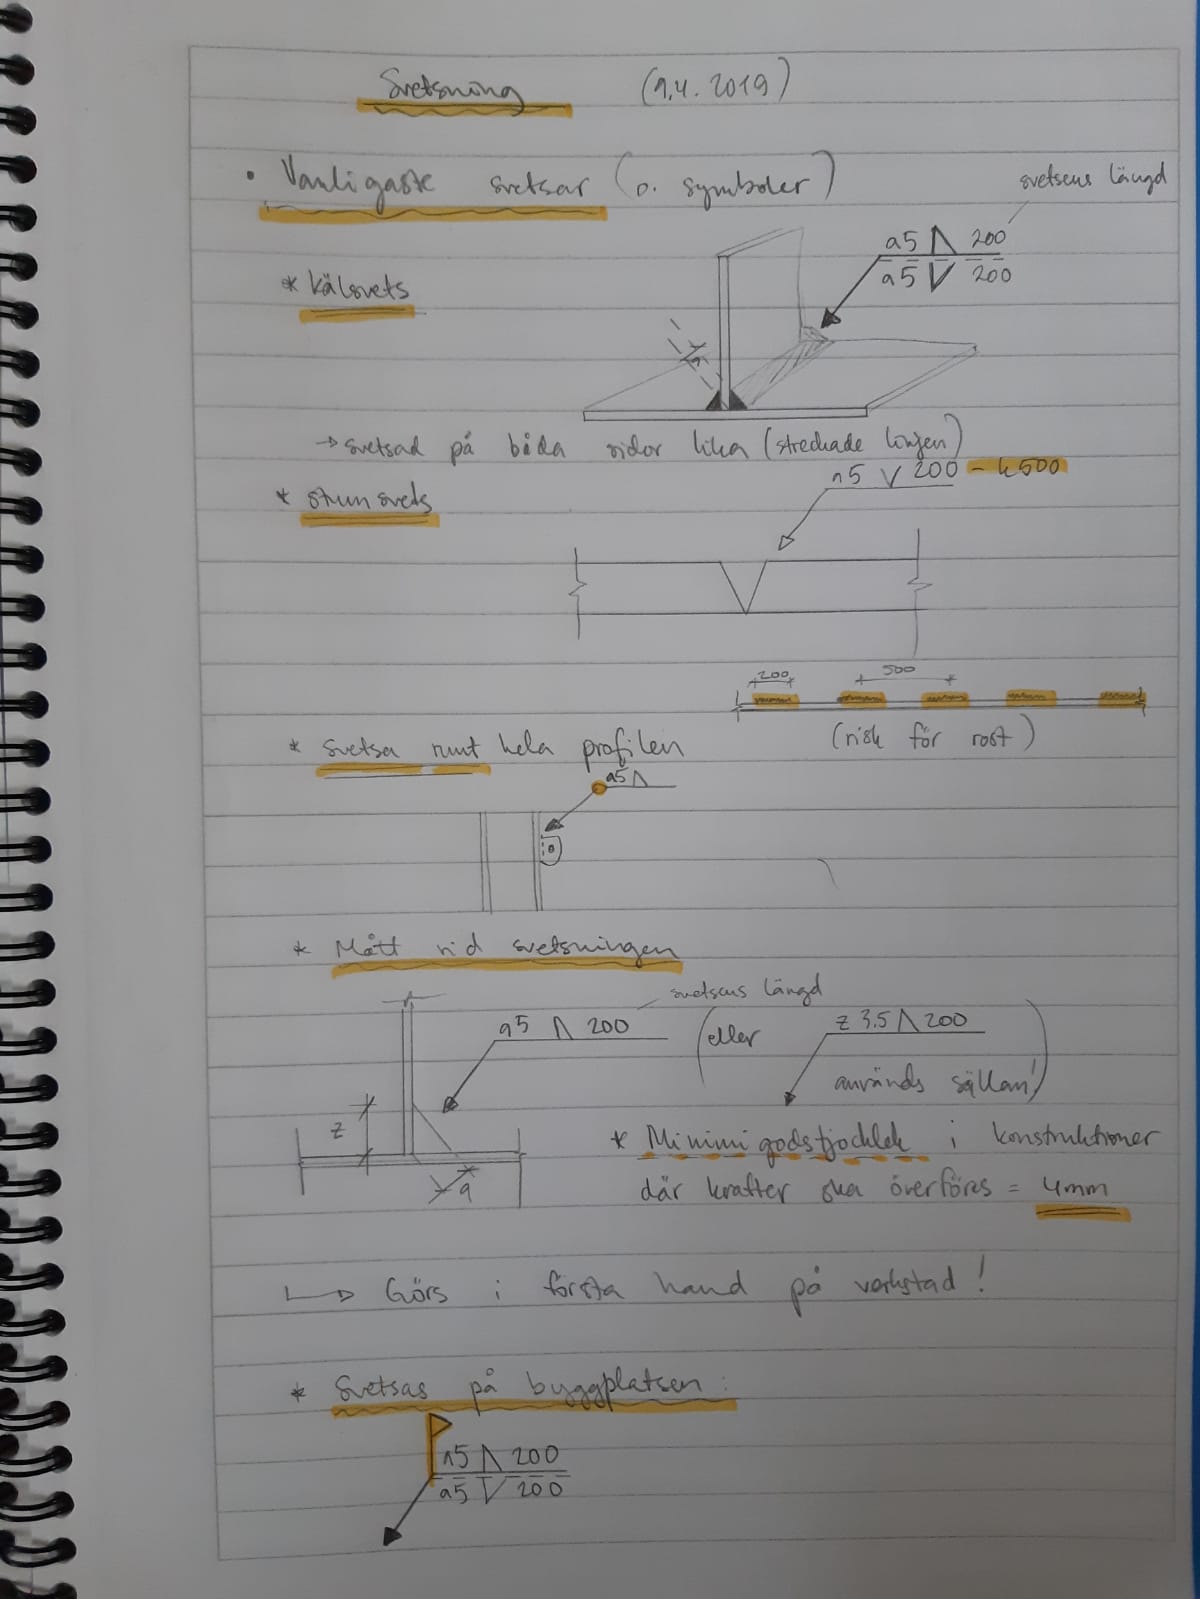 Svetsning (9.4.2019)
• Vanligaste svetsar (o. symboler)
svetsens längd
a5 200
a5 200
* kälsvets
a
→ svetsad på båda sidor lika (streckade linjen)
a5 V 200 - k500
* stumsvets
200 500
(risk för rost)
* Svetsa runt hela profilen
a5
* Mått vid svetsningen
svetsens längd
a5 200 (eller z 3.5 200
används sällan!)
z
a
* Minimigodstjocklek i konstruktioner
där krafter ska överföras = 4mm
↳ Görs i första hand på verkstad!
* Svetsas på byggplatsen:
a5 200
a5 200